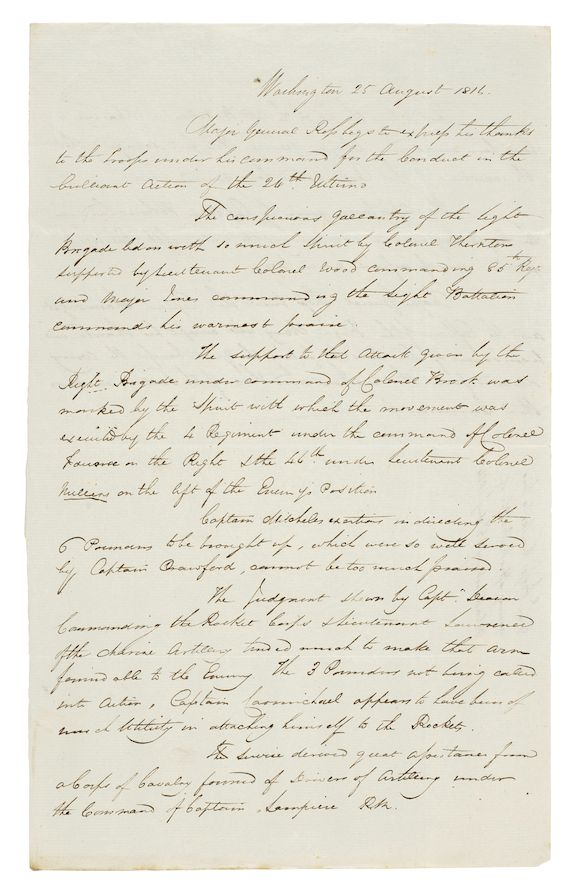 Washington 25 August 1814.
Major General Ross begs to express his thanks
to the Troops under his command for the Conduct in the
brilliant Action of the 24th Ultimo
The conspicuous gallantry of the Light
Brigade led on with so much Spirit by Colonel Thornton
supported by Lieutenant Colonel Wood commanding 85th Regt
and Major Jones commanding the Light Battalion
commands his warmest praise.
The support to that Attack given by the
Right Brigade under command of Colonel Brook was
marked by the Spirit with which the movement was
executed by the 4 Regiment under the command of Colonel
on the Right & the 44th under Lieutenant Colonel
Mullens on the left of the Enemys Position
Captain Mitchells exertions in directing the
6 Pounders to be brought up, which were so well served
by Captain Crawford, cannot be too much praised.
The Judgment shewn by Captn Deacon
Commanding the Rocket Corps & Lieutenant Lawrence
of the Marine Artillery tended much to make that arm
formidable to the Enemy The 3 Pounders not being called
into Action, Captain Carmichael appears to have been of
much Utility in attaching himself to the Rockets.
The Service derived great assistance from
a Corps of Cavalry formed of Drivers of Artillery under
the Command of Captain Lempriere RA.